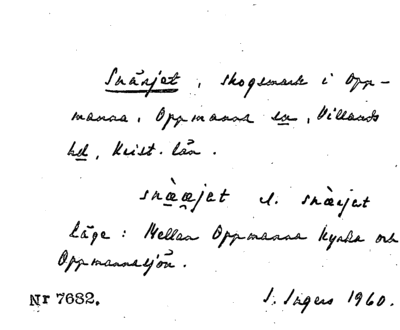 Snärjet, skogsmark i Opp-
manna, Oppmanna sn, Villands
hd, Krist. län.
snæ̀æ̯jet l. snæ̀rjet
Läge: Mellan Oppmanna kyrka och
Oppmannasjön.
Nr 7682. I. Ingers 1960.